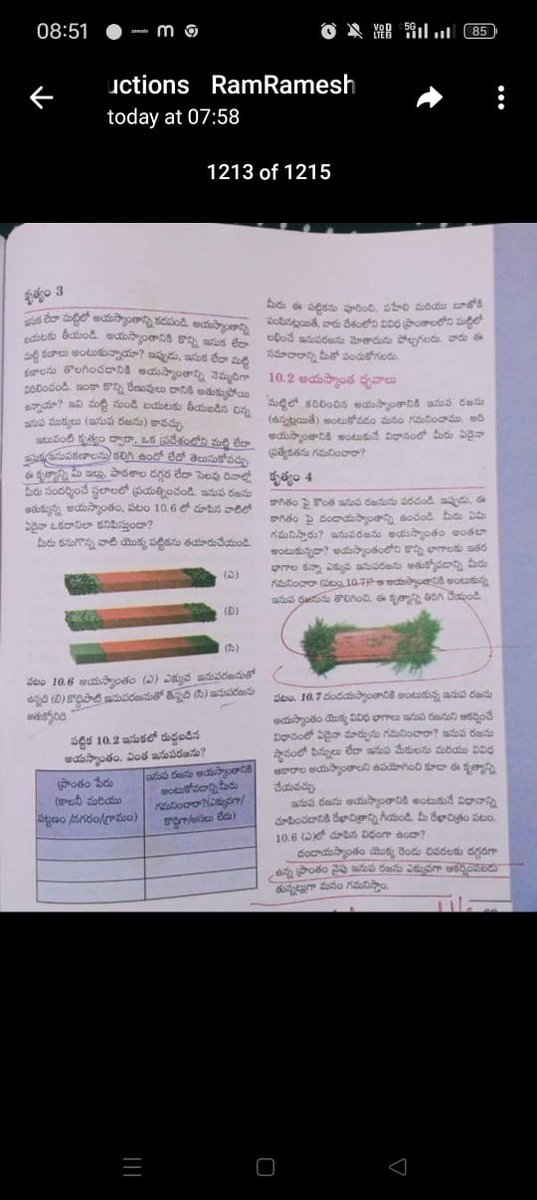 08:51
zomato
m
VoD
LTE
5G
85
uctions RamRamesh
today at 07:58
1213 of 1215
కృత్యం 3
ఇసుక లేదా మట్టిలో అయస్కాంతాన్ని కదపండి. అయస్కాంతాన్ని
బయటకు తీయండి. అయస్కాంతానికి కొన్ని ఇసుక లేదా
మట్టి కణాలు అంటుకున్నాయా? ఇప్పుడు, ఇసుక లేదా మట్టి
కణాలను తొలగించడానికి అయస్కాంతాన్ని నెమ్మదిగా
విదిలించండి. ఇంకా కొన్ని రేణువులు దానికి అతుక్కుపోయి
ఉన్నాయా? ఇవి మట్టి నుండి బయటకు తీయబడిన చిన్న
ఇనుప ముక్కలు (ఇనుప రజను) కావచ్చు.
ఇటువంటి కృత్యం ద్వారా, ఒక ప్రదేశంలోని మట్టి లేదా
ఇసుక ఇనుపకణాలను కలిగి ఉందో లేదో తెలుసుకోవచ్చు.
ఈ కృత్యాన్ని మీ ఇల్లు, పాఠశాల దగ్గర లేదా సెలవు దినాల్లో
మీరు సందర్శించే స్థలాలలో ప్రయత్నించండి. ఇనుప రజను
అతుక్కున్న అయస్కాంతం, పటం 10.6 లో చూపిన వాటిలో
ఏదైనా ఒకదానిలా కనిపిస్తుందా?
మీరు కనుగొన్న వాటి యొక్క పట్టికను తయారుచేయండి.
(ఎ)
(బి)
(సి)
పటం 10.6 అయస్కాంతం (ఎ) ఎక్కువ ఇనుపరజనుతో
ఉన్నది (బి) కొద్దిపాటి ఇనుపరజనుతో ఉన్నది (సి) ఇనుపరజను
అతుక్కోనిది
పట్టిక 10.2 ఇసుకలో రుద్దబడిన
అయస్కాంతం. ఎంత ఇనుపరజను?
ప్రాంతం పేరు
(కాలనీ మరియు
పట్టణం /నగరం/గ్రామం)
ఇనుప రజను అయస్కాంతానికి
అంటుకోవడాన్ని మీరు
గమనించారా?(ఎక్కువగా/
కొద్దిగా/అసలు లేదు)
మీరు ఈ పట్టికను పూరించి, పహేలి మరియు బూజోకి
పంపినట్లయితే, వారు దేశంలోని వివిధ ప్రాంతాలలోని మట్టిలో
లభించే ఇనుపరజను మోతాదును పోల్చగలరు. వారు ఈ
సమాచారాన్ని మీతో పంచుకోగలరు.
10.2 అయస్కాంత ధృవాలు
మట్టిలో కదిలించిన అయస్కాంతానికి ఇనుప రజను
(ఉన్నట్లయితే) అంటుకోవడం మనం గమనించాము. అది
అయస్కాంతానికి అంటుకునే విధానంలో మీరు ఏదైనా
ప్రత్యేకతను గమనించారా?
కృత్యం 4
కాగితం పై కొంత ఇనుప రజనును పరచండి. ఇప్పుడు, ఈ
కాగితం పై దండాయస్కాంతాన్ని ఉంచండి. మీరు ఏమి
గమనిస్తారు? ఇనుపరజను అయస్కాంతం అంతటా
అంటుకున్నదా? అయస్కాంతంలోని కొన్ని భాగాలకు ఇతర
భాగాల కన్నా ఎక్కువ ఇనుపరజను అతుక్కోవడాన్ని మీరు
గమనించారా (పటం 10.7)? ఆ అయస్కాంతానికి అంటుకున్న
ఇనుప రజనును తొలిగించి, ఈ కృత్యాన్ని తిరిగి చేయండి.
పటం. 10.7 దండయస్కాంతానికి అంటుకున్న ఇనుప రజను
అయస్కాంతం యొక్క వివిధ భాగాలు ఇనుప రజనుని ఆకర్షించే
విధానంలో ఏదైనా మార్పును గమనించారా? ఇనుప రజను
స్థానంలో పిన్నులు లేదా ఇనుప మేకులను మరియు వివిధ
ఆకారాల అయస్కాంతాలని ఉపయోగించి కూడా ఈ కృత్యాన్ని
చేయవచ్చు.
ఇనుప రజను అయస్కాంతానికి అంటుకునే విధానాన్ని
చూపించడానికి రేఖాచిత్రాన్ని గీయండి. మీ రేఖాచిత్రం పటం.
10.6 (ఎ)లో చూపిన విధంగా ఉందా?
దండాయస్కాంతం యొక్క రెండు చివరలకు దగ్గరగా
ఉన్న ప్రాంతం వైపు ఇనుప రజను ఎక్కువగా ఆకర్షింపబడు
తున్నట్లుగా మనం గమనిస్తాం.